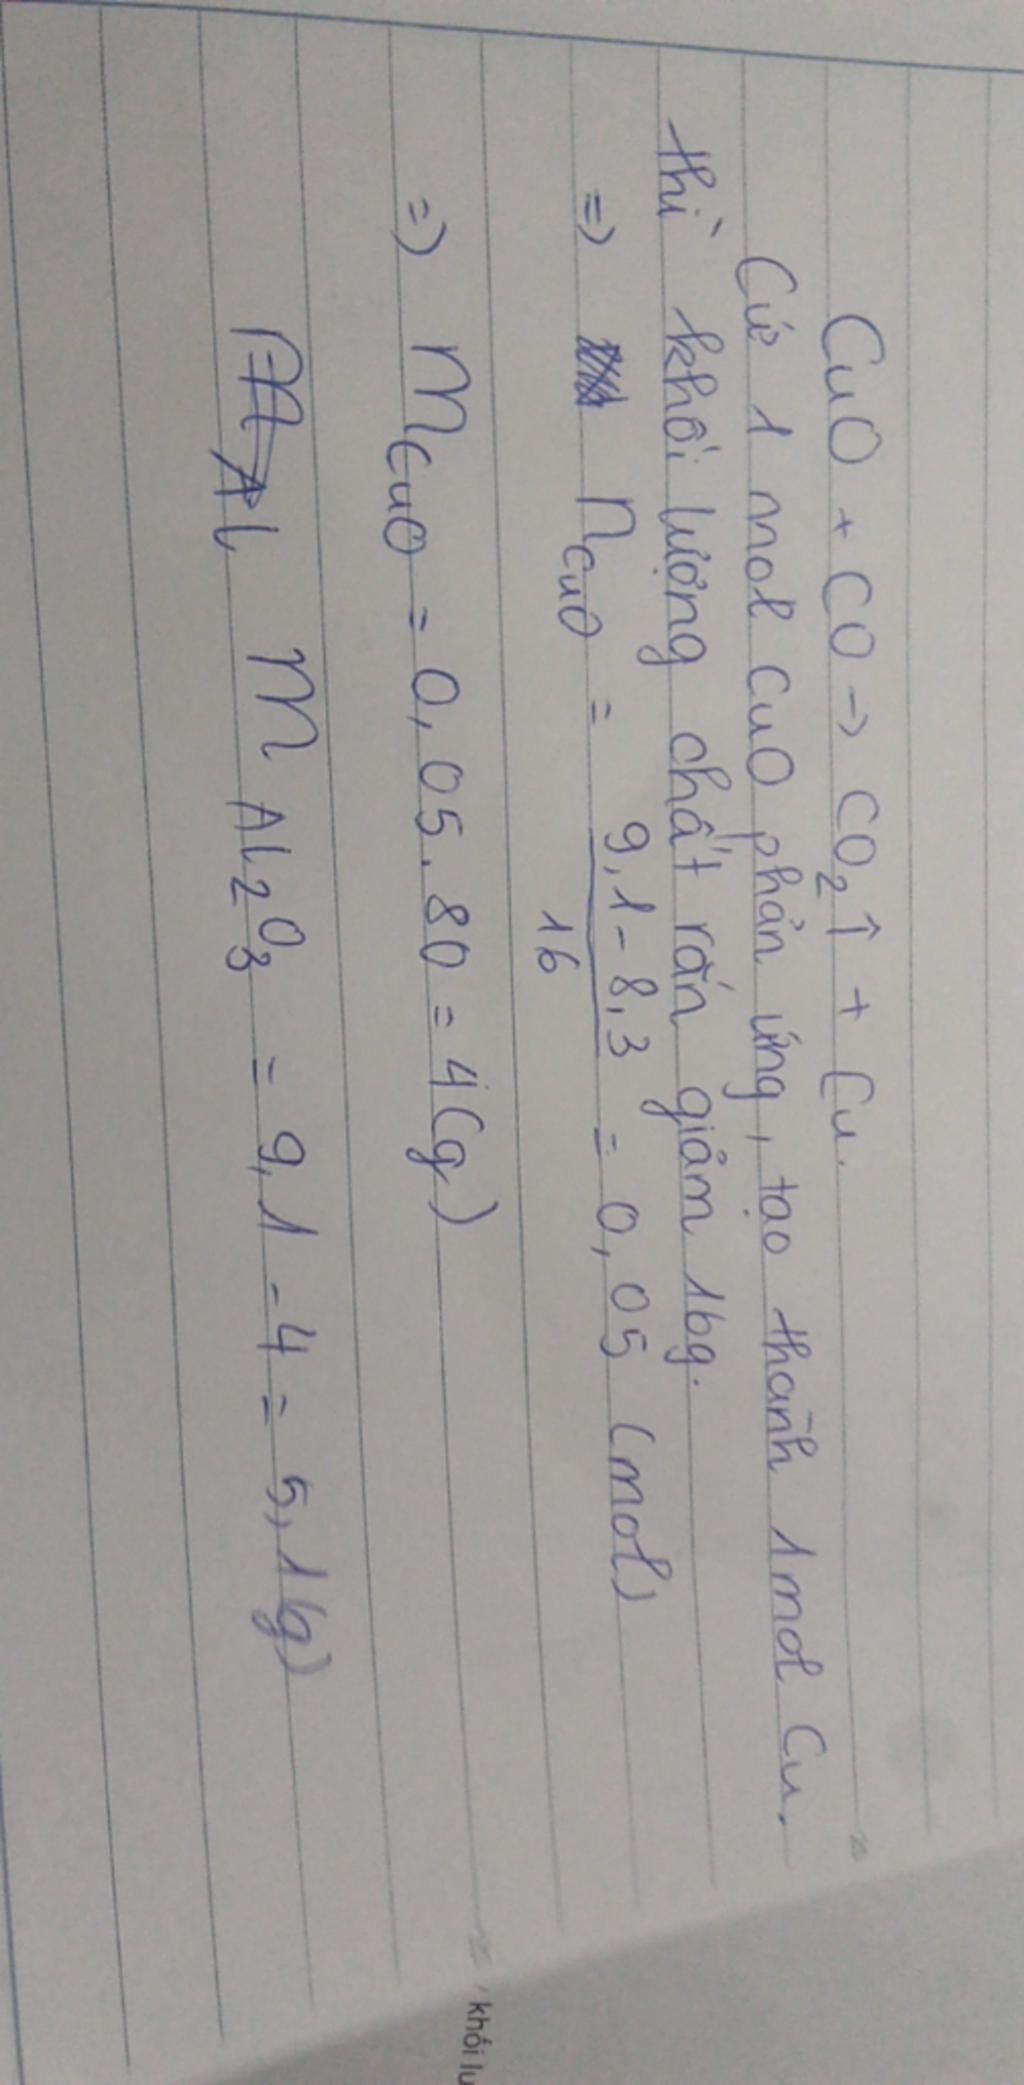 CuO + CO → CO₂↑ + Cu.
Cứ 1 mol CuO phản ứng, tạo thành 1mol Cu.
thì khối lượng chất rắn giảm 16g.
=> nCuO = (9,1 - 8,3)/16 = 0,05 (mol)
=> mCuO = 0,05 . 80 = 4(g)
m Al₂O₃ = 9,1 - 4 = 5,1(g)
khối lư